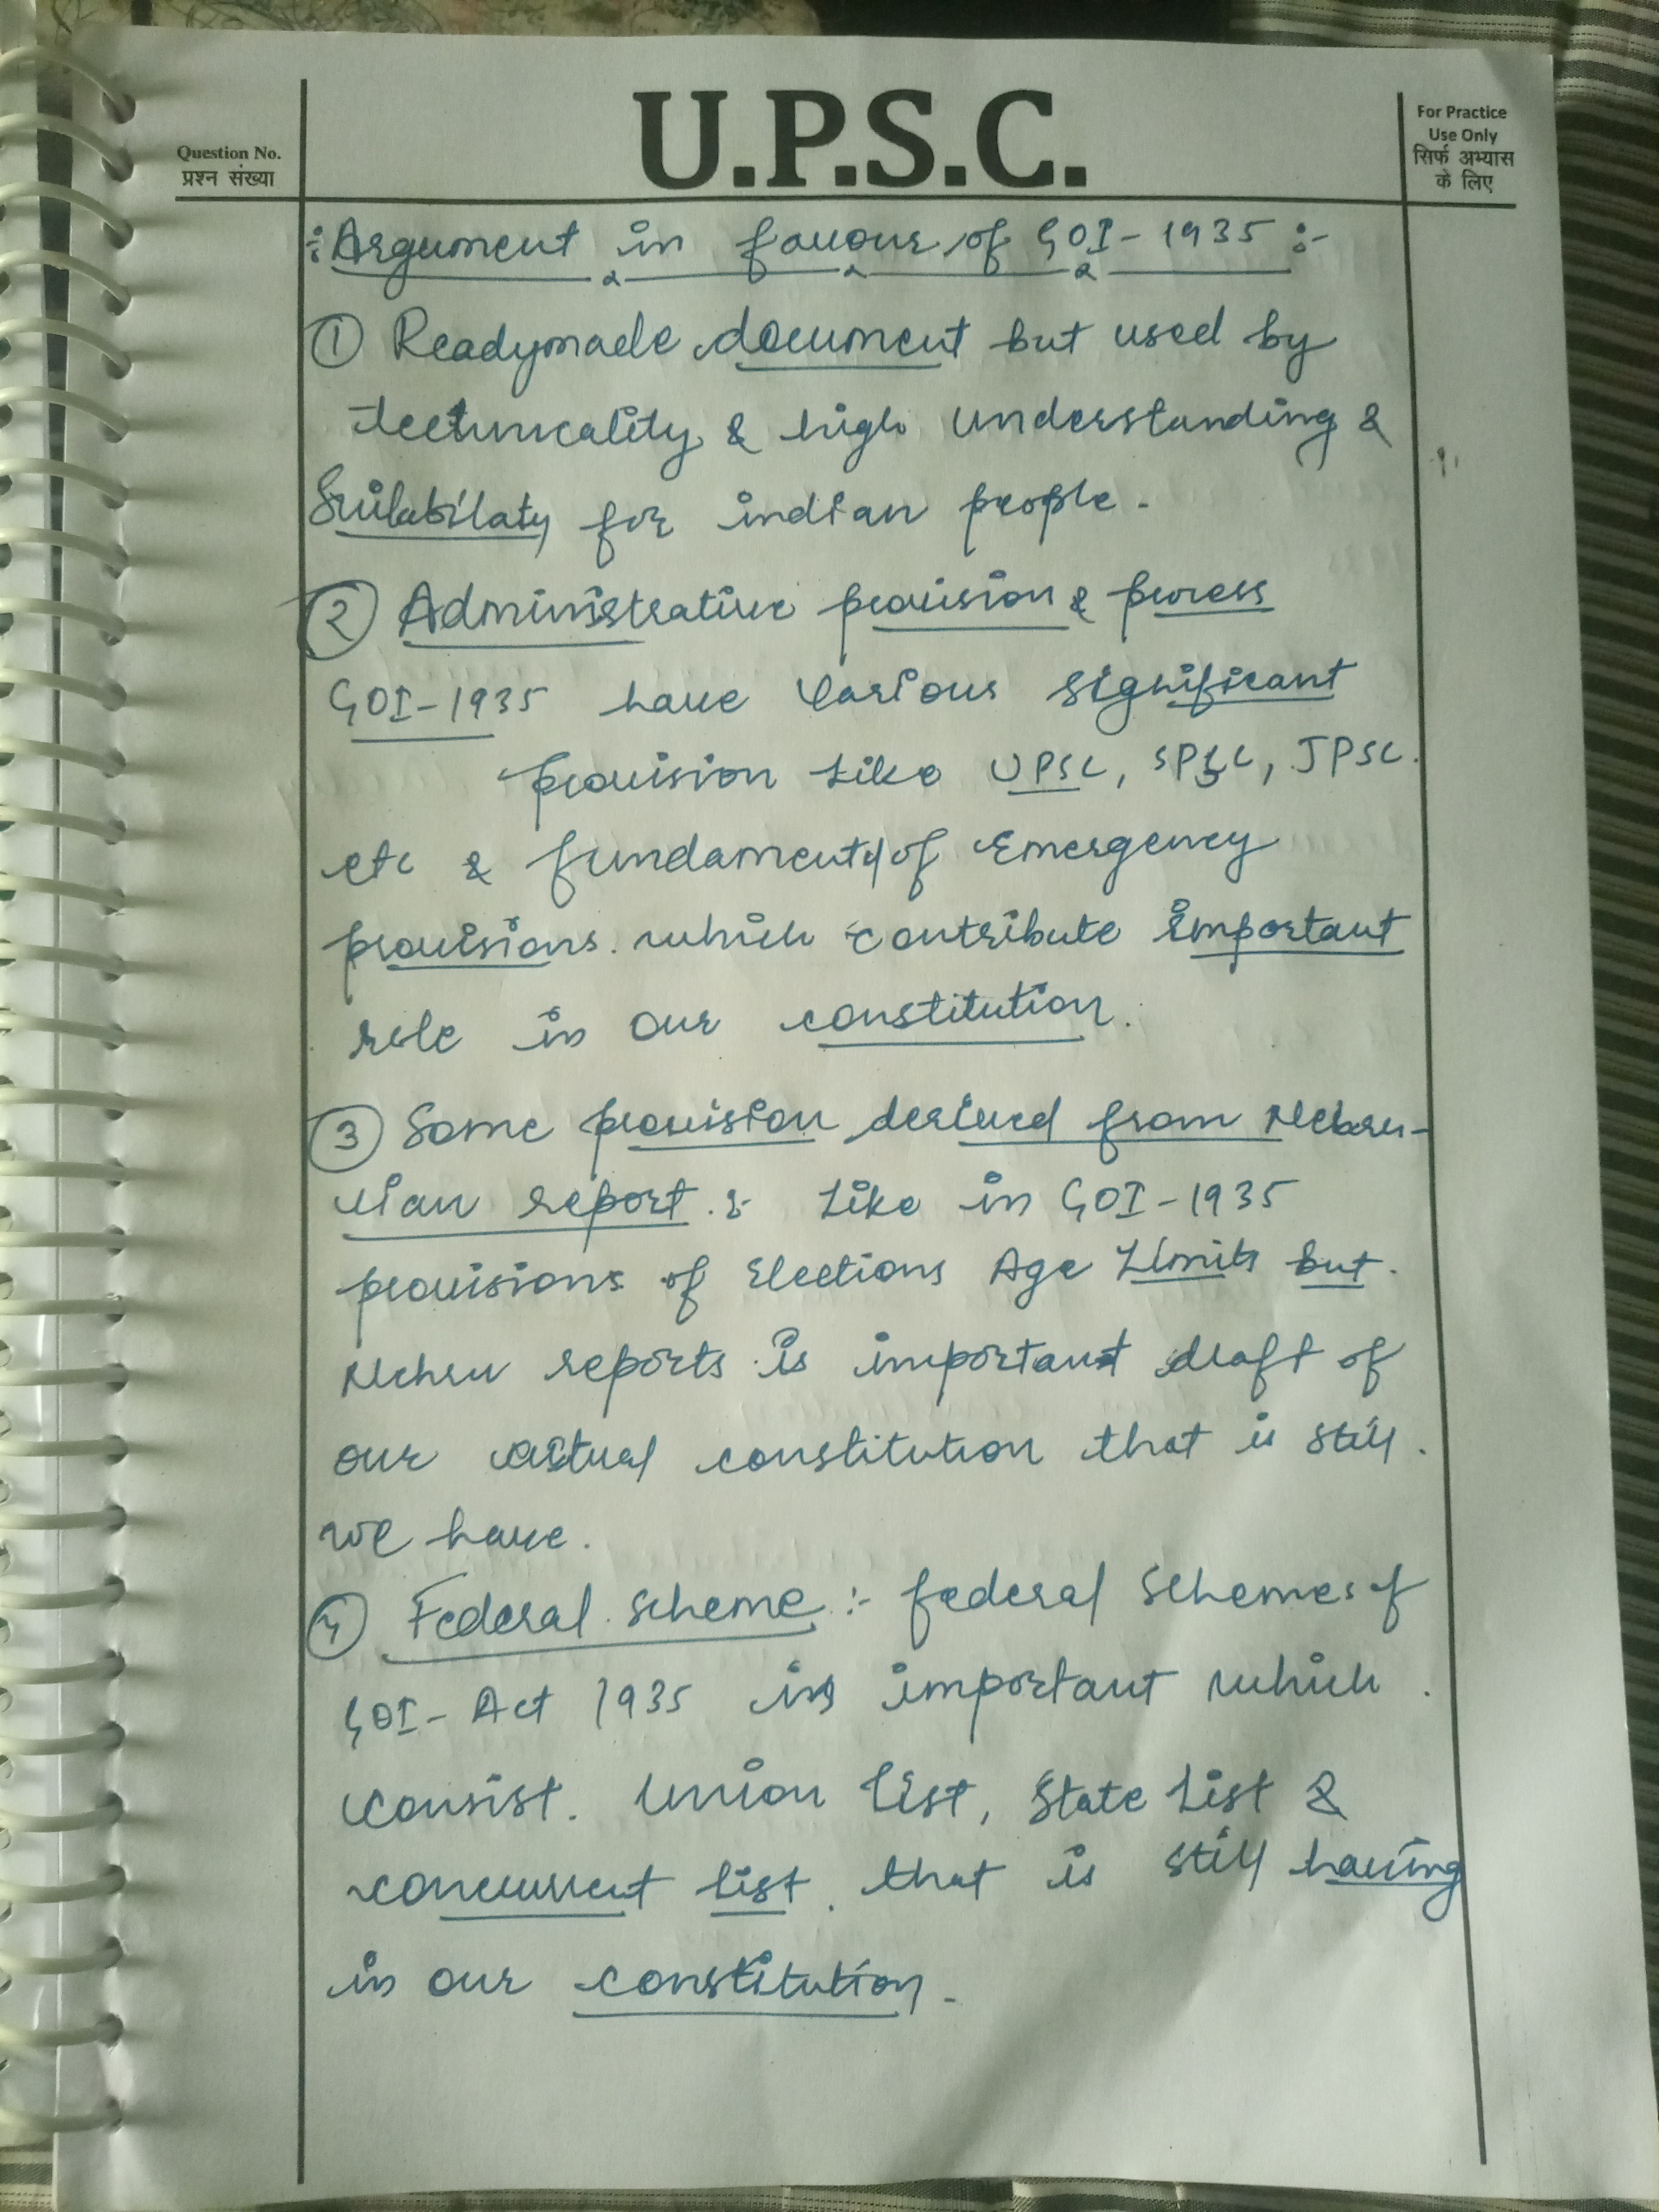 U.P.S.C.
Question No.
प्रश्न संख्या
For Practice
Use Only
सिर्फ अभ्यास
के लिए
:Argument in favour of GOI-1935 :-
① Readymade document but used by
technicality & high understanding &
Suilabilaty for indian people.
② Administrative provision & process
GOI-1935 have various significant
provision like UPSC, SPSC, JPSC.
etc & fundamently of Emergency
provisions. which contribute important
role in our constitution.
③ Some provision derived from Nehru-
vian report :- Like in GOI-1935
provisions of Elections Age Limits but.
Nehru reports is important draft of
our actual constitution that is still.
we have.
④ Federal scheme :- federal schemes of
GOI-Act 1935 is important which.
consist. Union List, State List &
concurrent list. that is still having
in our constitution.